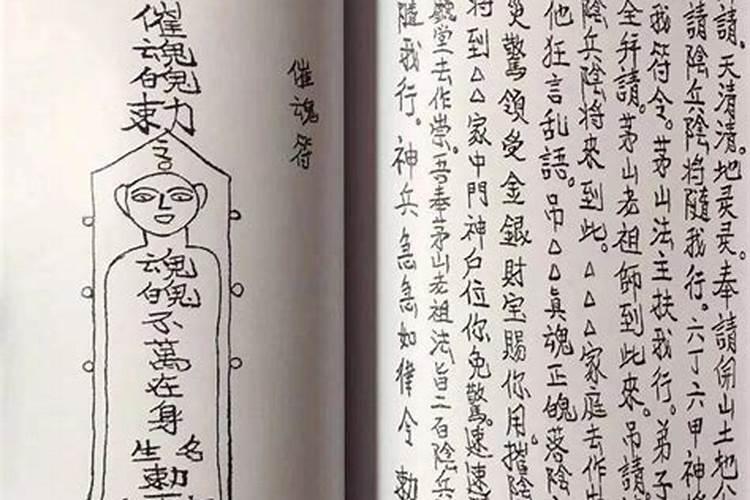 請。天清清。地灵灵。奉請開山土地
請陰兵陰將隨我行。六丁六甲神將
我符令。茅山法主扶我行。弟子
全拜請。茅山老祖師到此來。吊請
陰兵陰將來到此。△△△家庭去作
他狂言乱語。吊△△真魂正魄落陰
災驚領受金銀財宝賜你用。摧陰
将到△△家中門神户位你免驚。速速
堂去作祟。吾奉茅山老祖法旨二百陰兵
隨我行。神兵急急如律令 勅
催魂符
催魂魄勅
魂魄不萬在身
生勅名